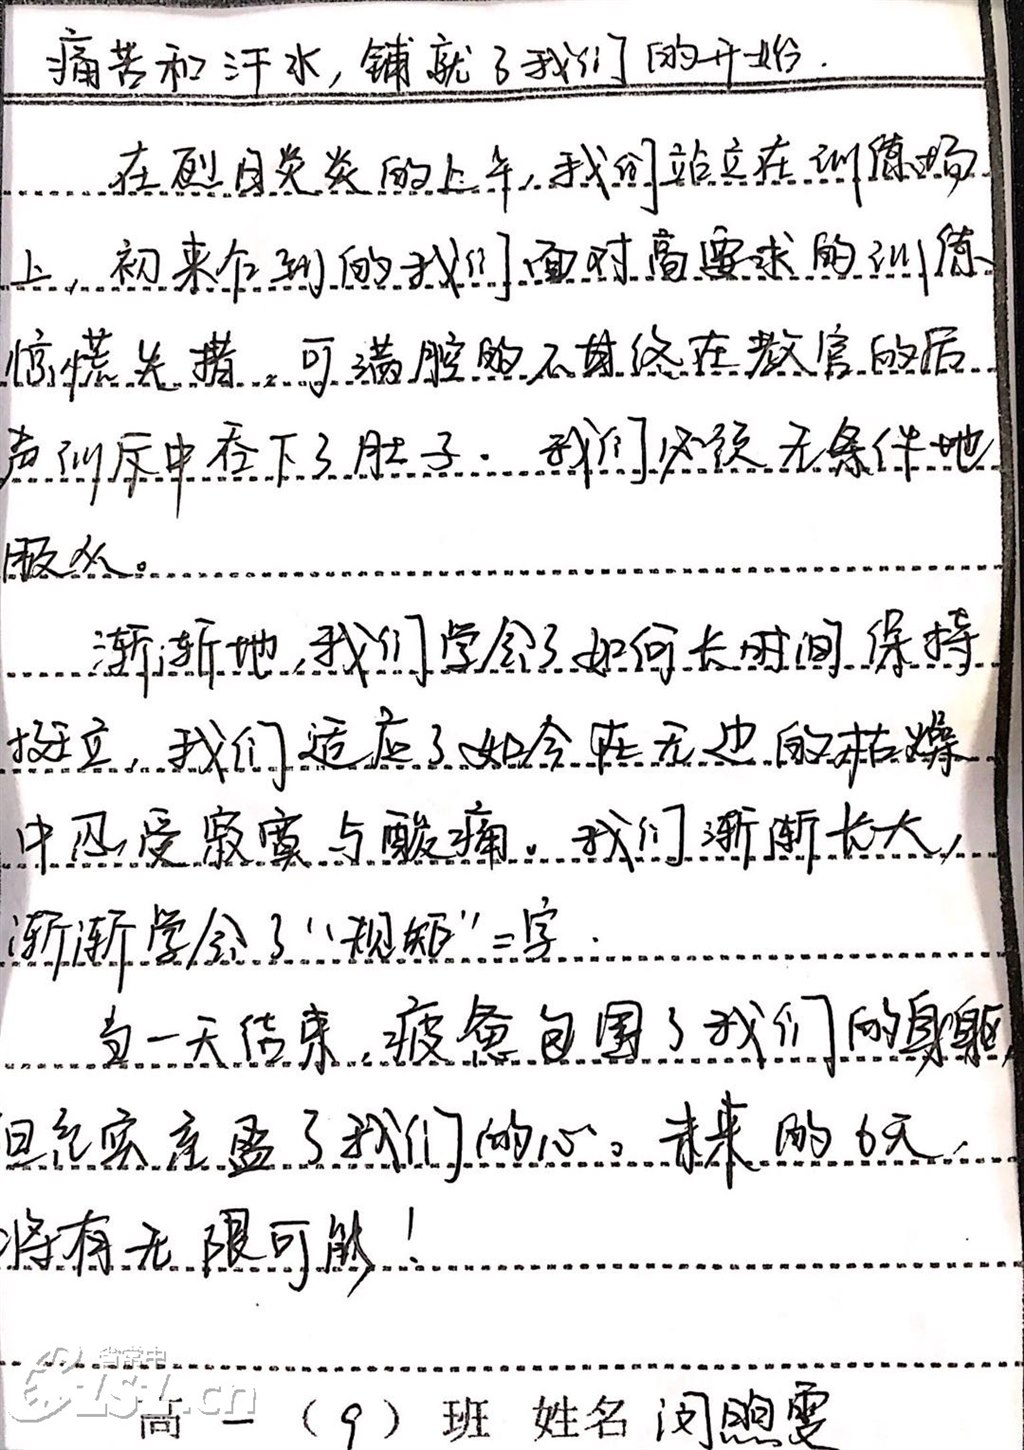 痛苦和汗水，铺就了我们的开始.
在烈日炎炎的上午，我们站立在训练场
上，初来乍到的我们面对高要求的训练
惊慌失措，可满腔的不甘终在教官的后
声训斥中吞下了肚子. 我们必须无条件地
服从。
渐渐地，我们学会了如何长时间保持
挺立，我们适应了如今在无边的枯燥
中忍受寂寞与酸痛。我们渐渐长大，
渐渐学会了“规矩”二字.
当一天结束，疲惫包围了我们的身躯
但充实充盈了我们的心。未来的6天，
将有无限可能！
省常中
cn
高一（9）班 姓名 闵